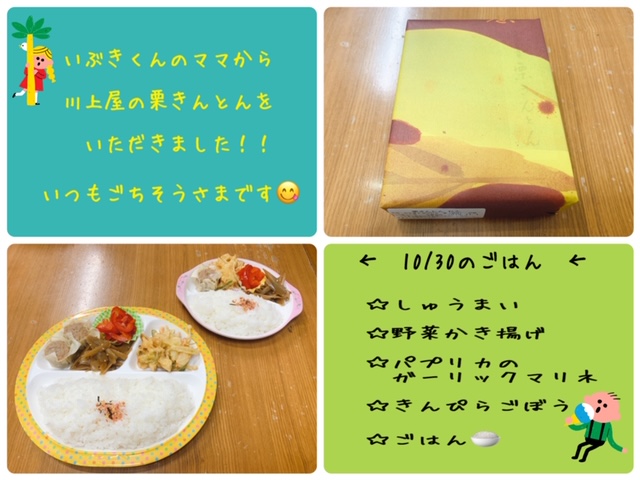 いぶきくんのママから
川上屋の栗きんとんを
いただきました！！
いつもごちそうさまです😋
← 10/30のごはん ←
☆しゅうまい
☆野菜かき揚げ
☆パプリカの
ガーリックマリネ
☆きんぴらごぼう
☆ごはん🍚